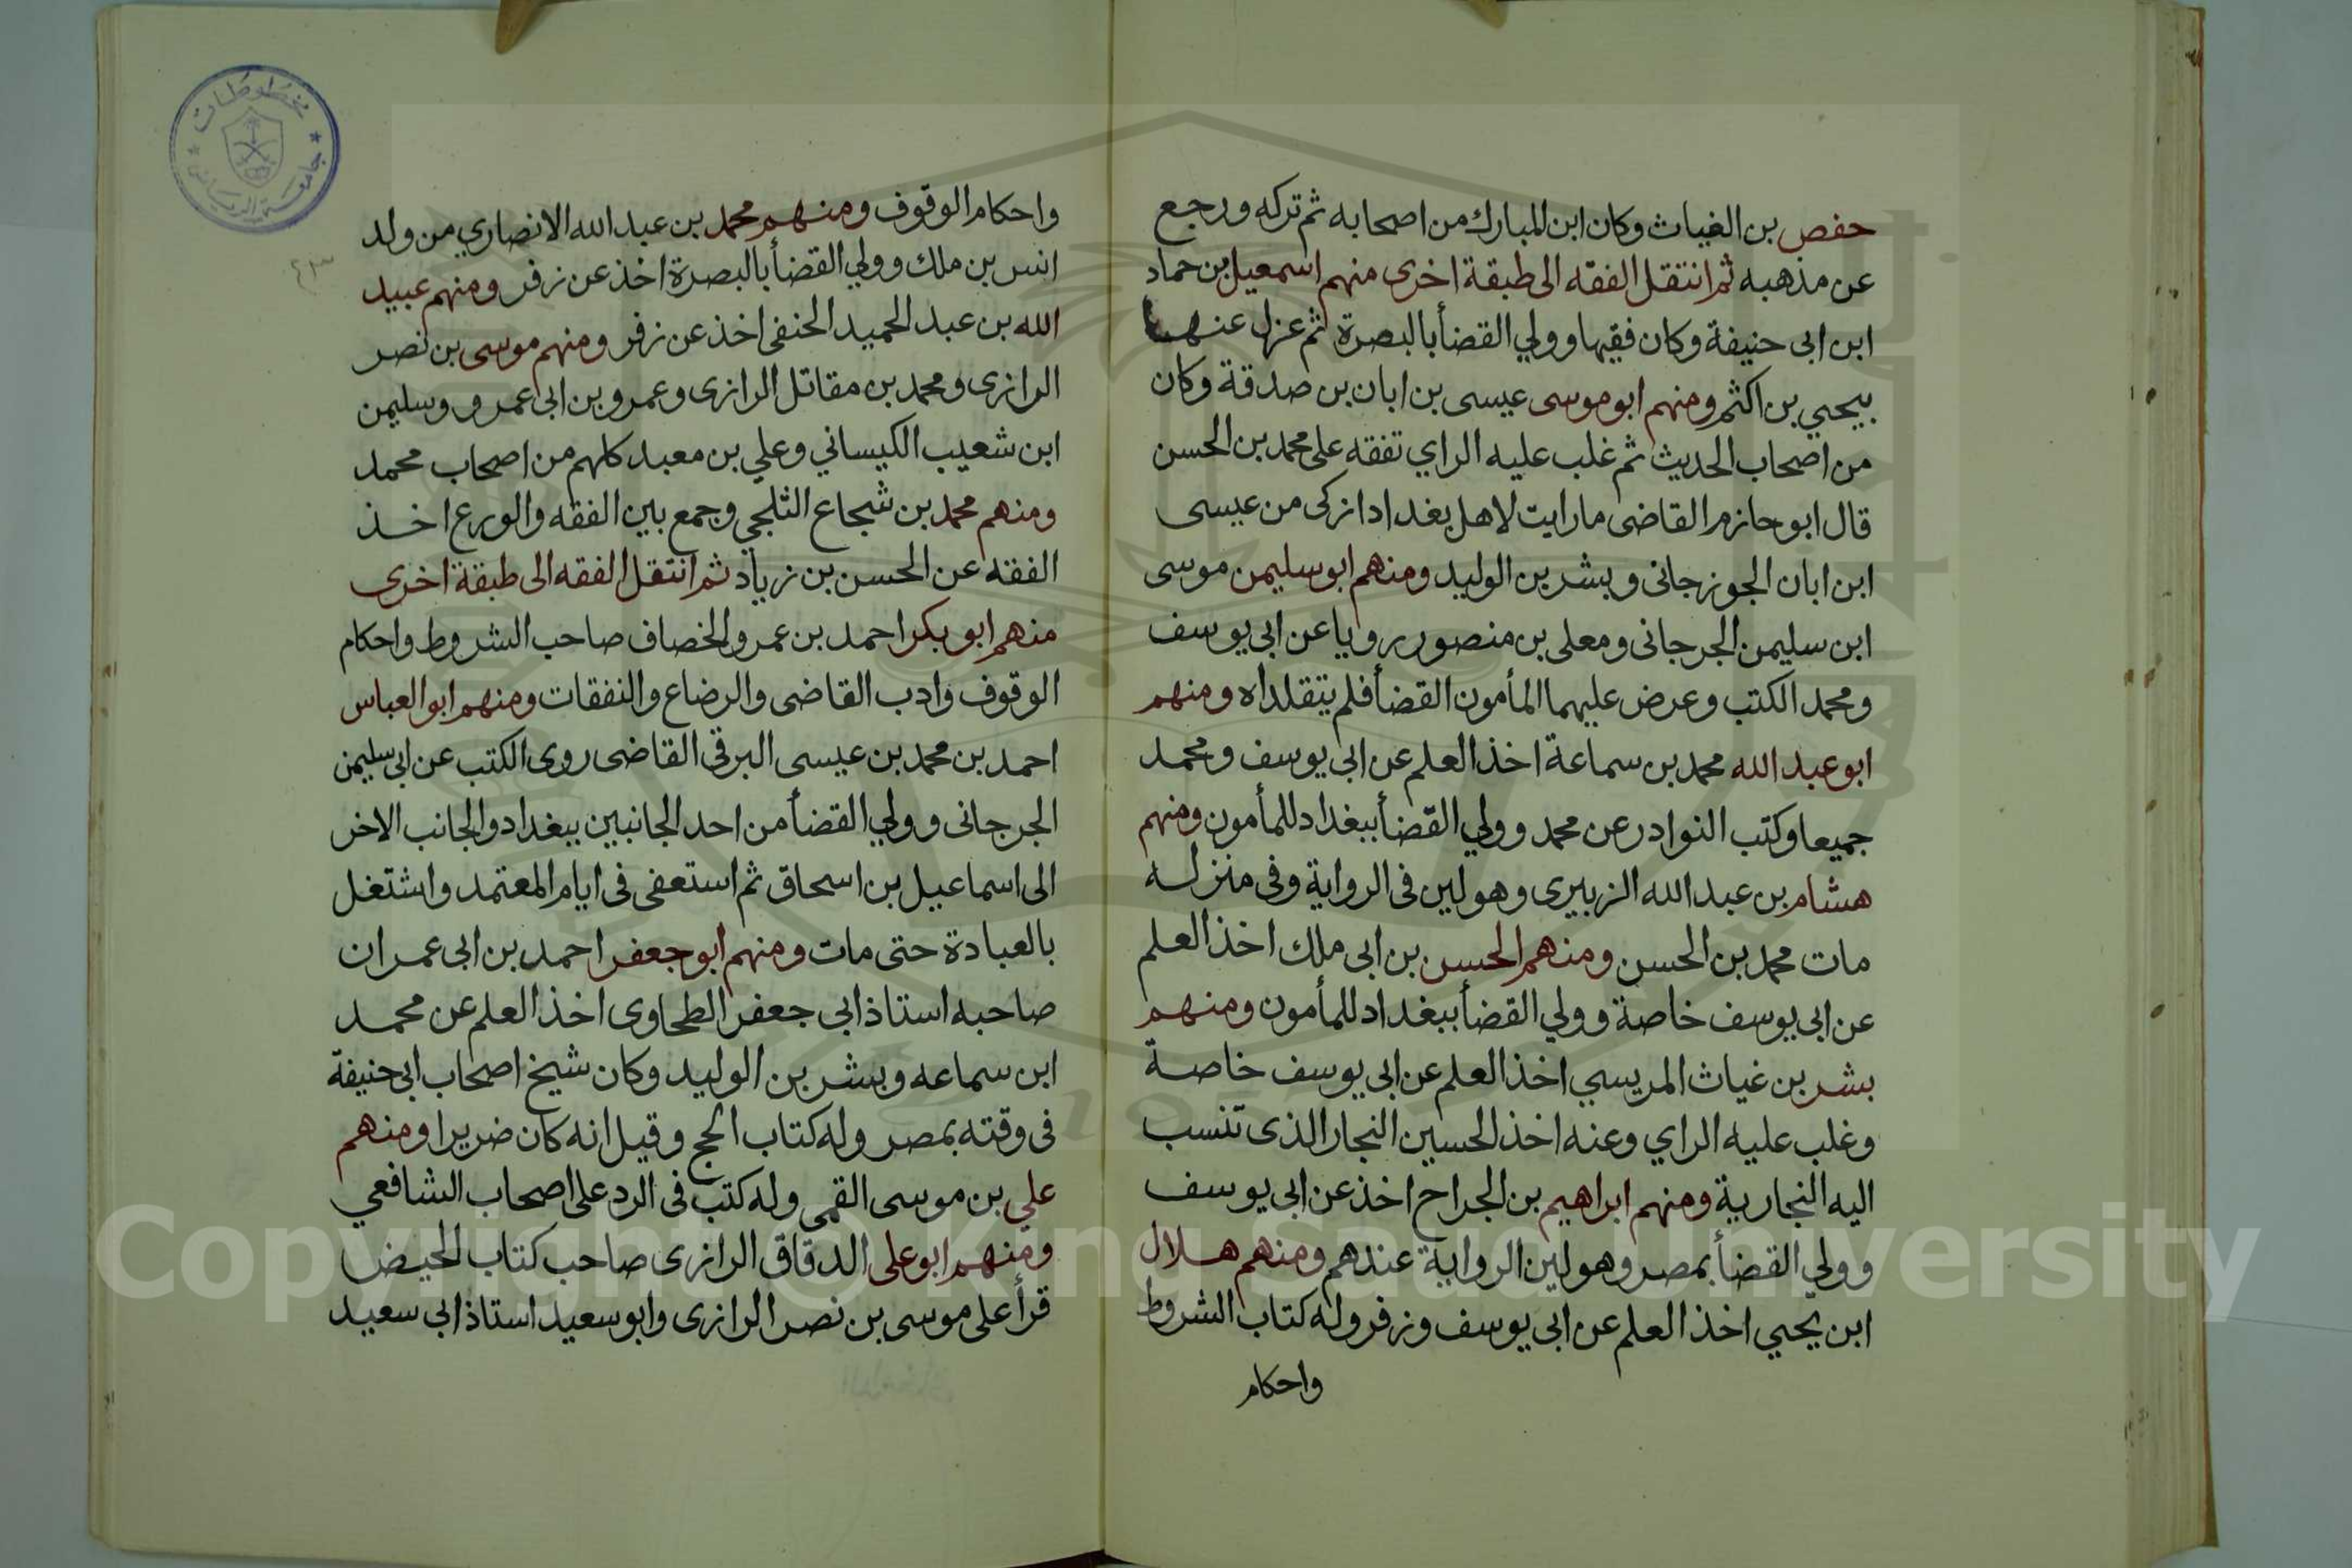 حفص بن الغياث وكان ابن المبارك من اصحابه ثم تركه ورجع
عن مذهبه ثم انتقل الفقه الى طبقة اخرى منهم اسمعيل بن حماد
ابن ابى حنيفة وكان فقيها وولي القضأ بالبصرة ثم عزل عنها
بيحيي بن اكثم ومنهم ابو موسى عيسى بن ابان بن صدقة وكان
من اصحاب الحديث ثم غلب عليه الراي تفقه على محمد بن الحسن
قال ابو حازم القاضى ما رايت لاهل بغداد ازكى من عيسى
ابن ابان الجوزجانى وبشر بن الوليد ومنهم ابو سليمن موسى
ابن سليمن الجرجانى ومعلى بن منصور رويا عن ابى يوسف
ومحمد الكتب وعرض عليهما المأمون القضأ فلم يتقلداه ومنهم
ابو عبد الله محمد بن سماعة اخذ العلم عن ابى يوسف ومحمد
جميعا وكتب النوادر عن محمد وولي القضأ ببغداد للمأمون ومنهم
هشام بن عبد الله الزبيرى وهو لين فى الرواية وفى منزله
مات محمد بن الحسن ومنهم الحسن بن ابى ملك اخذ العلم
عن ابى يوسف خاصة وولي القضأ ببغداد للمأمون ومنهم
بشر بن غياث المريسي اخذ العلم عن ابى يوسف خاصة
وغلب عليه الراي وعنه اخذ الحسين النجار الذى تنسب
اليه النجارية ومنهم ابراهيم بن الجراح اخذ عن ابى يوسف
وولي القضأ بمصر وهو لين الرواية عندهم ومنهم هلال
ابن يحيي اخذ العلم عن ابى يوسف وزفر وله كتاب الشروط
واحكام
واحكام الوقوف ومنهم محمد بن عبد الله الانصاري من ولد
انس بن ملك وولي القضأ بالبصرة اخذ عن زفر ومنهم عبيد
الله بن عبد الحميد الحنفى اخذ عن زفر ومنهم موسى بن نصر
الرازى ومحمد بن مقاتل الرازى وعمرو بن ابى عمرو وسليمن
ابن شعيب الكيساني وعلي بن معبد كلهم من اصحاب محمد
ومنهم محمد بن شجاع الثلجي وجمع بين الفقه والورع اخذ
الفقه عن الحسن بن زياد ثم انتقل الفقه الى طبقة اخرى
منهم ابو بكر احمد بن عمرو الخصاف صاحب الشروط واحكام
الوقوف وادب القاضى والرضاع والنفقات ومنهم ابو العباس
احمد بن محمد بن عيسى البرقى القاضى روى الكتب عن ابى سليمن
الجرجانى وولي القضأ من احد الجانبين ببغداد والجانب الاخر
الى اسماعيل بن اسحاق ثم استعفى فى ايام المعتمد واشتغل
بالعبادة حتى مات ومنهم ابو جعفر احمد بن ابى عمران
صاحبه استاذ ابى جعفر الطحاوى اخذ العلم عن محمد
ابن سماعه وبشر بن الوليد وكان شيخ اصحاب ابى حنيفة
فى وقته بمصر وله كتاب الحج وقيل انه كان ضريرا ومنهم
علي بن موسى القمى وله كتب فى الرد على اصحاب الشافعي
ومنهم ابو على الدقاق الرازى صاحب كتاب الحيض
قرأ على موسى بن نصر الرازى وابو سعيد استاذ ابى سعيد
مخطوطات
جامعة الرياض
Copyright © King Saud University